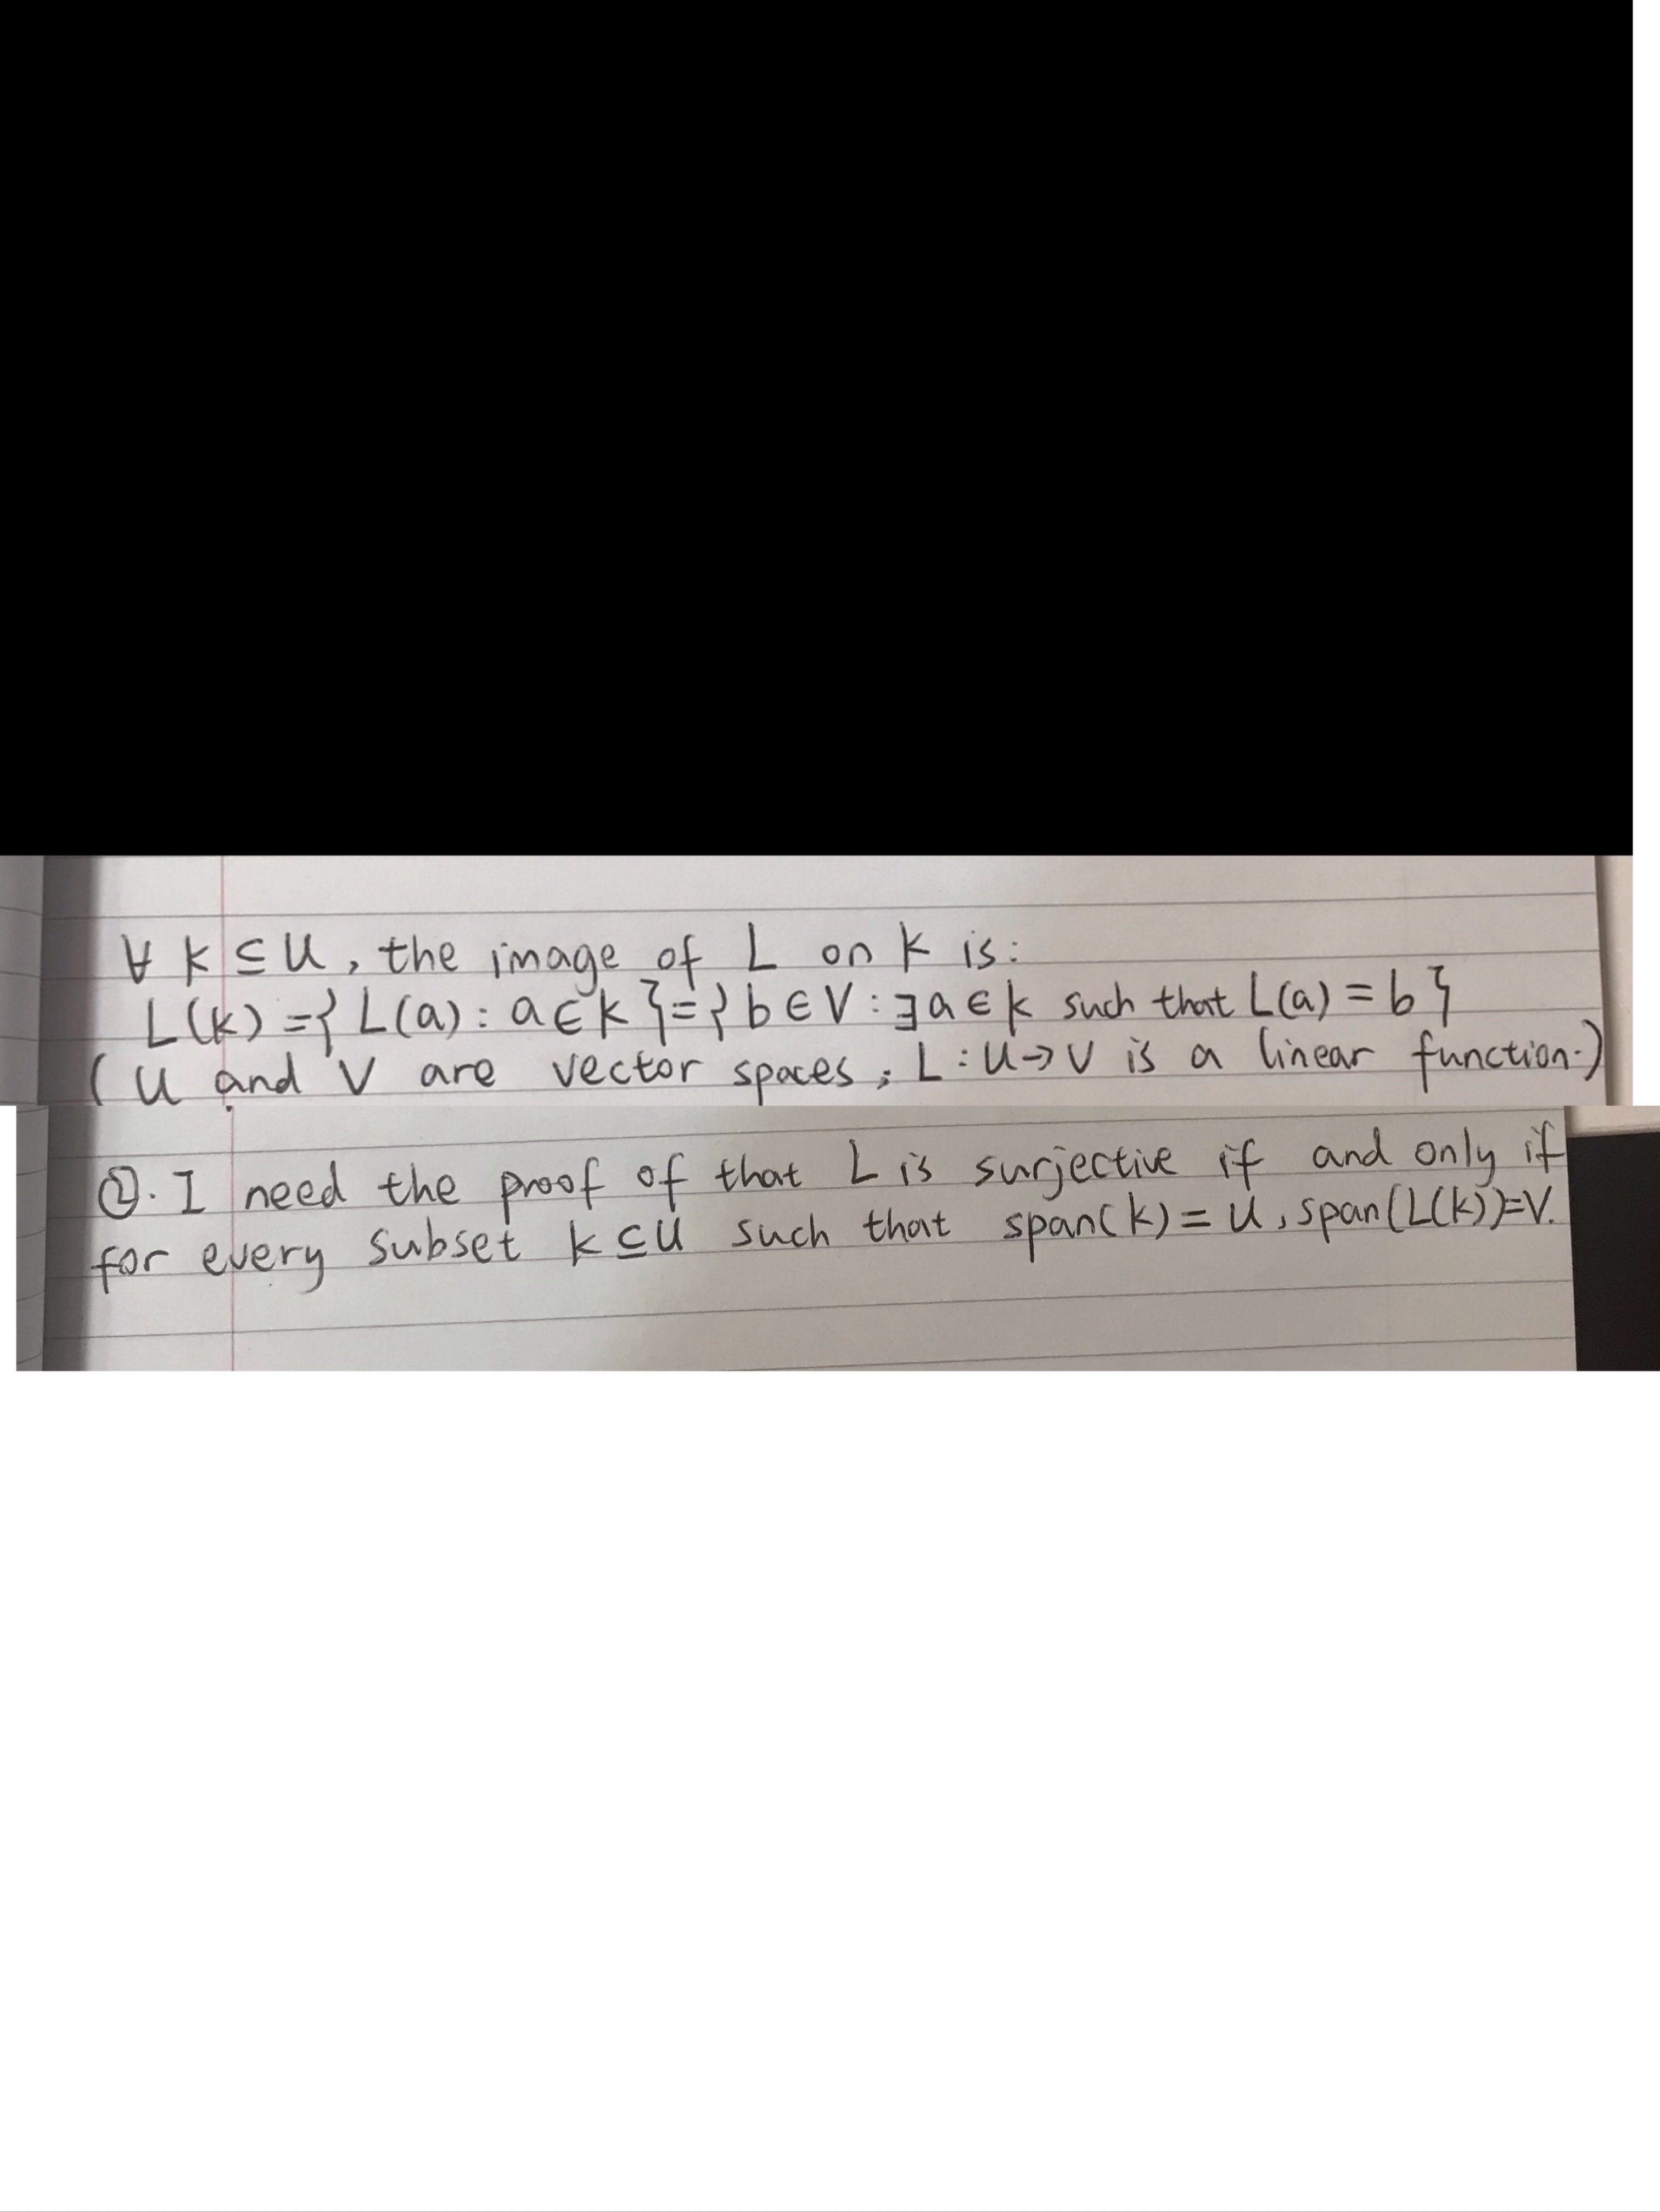 ∀ K ⊆ U, the image of L on K is:
L(K) = { L(a) : a ∈ K } = { b ∈ V : ∃ a ∈ K such that L(a) = b }
( U and V are vector spaces; L : U → V is a linear function.)
②. I need the proof of that L is surjective if and only if
for every subset K ⊆ U such that span(K) = U, span(L(K)) = V.